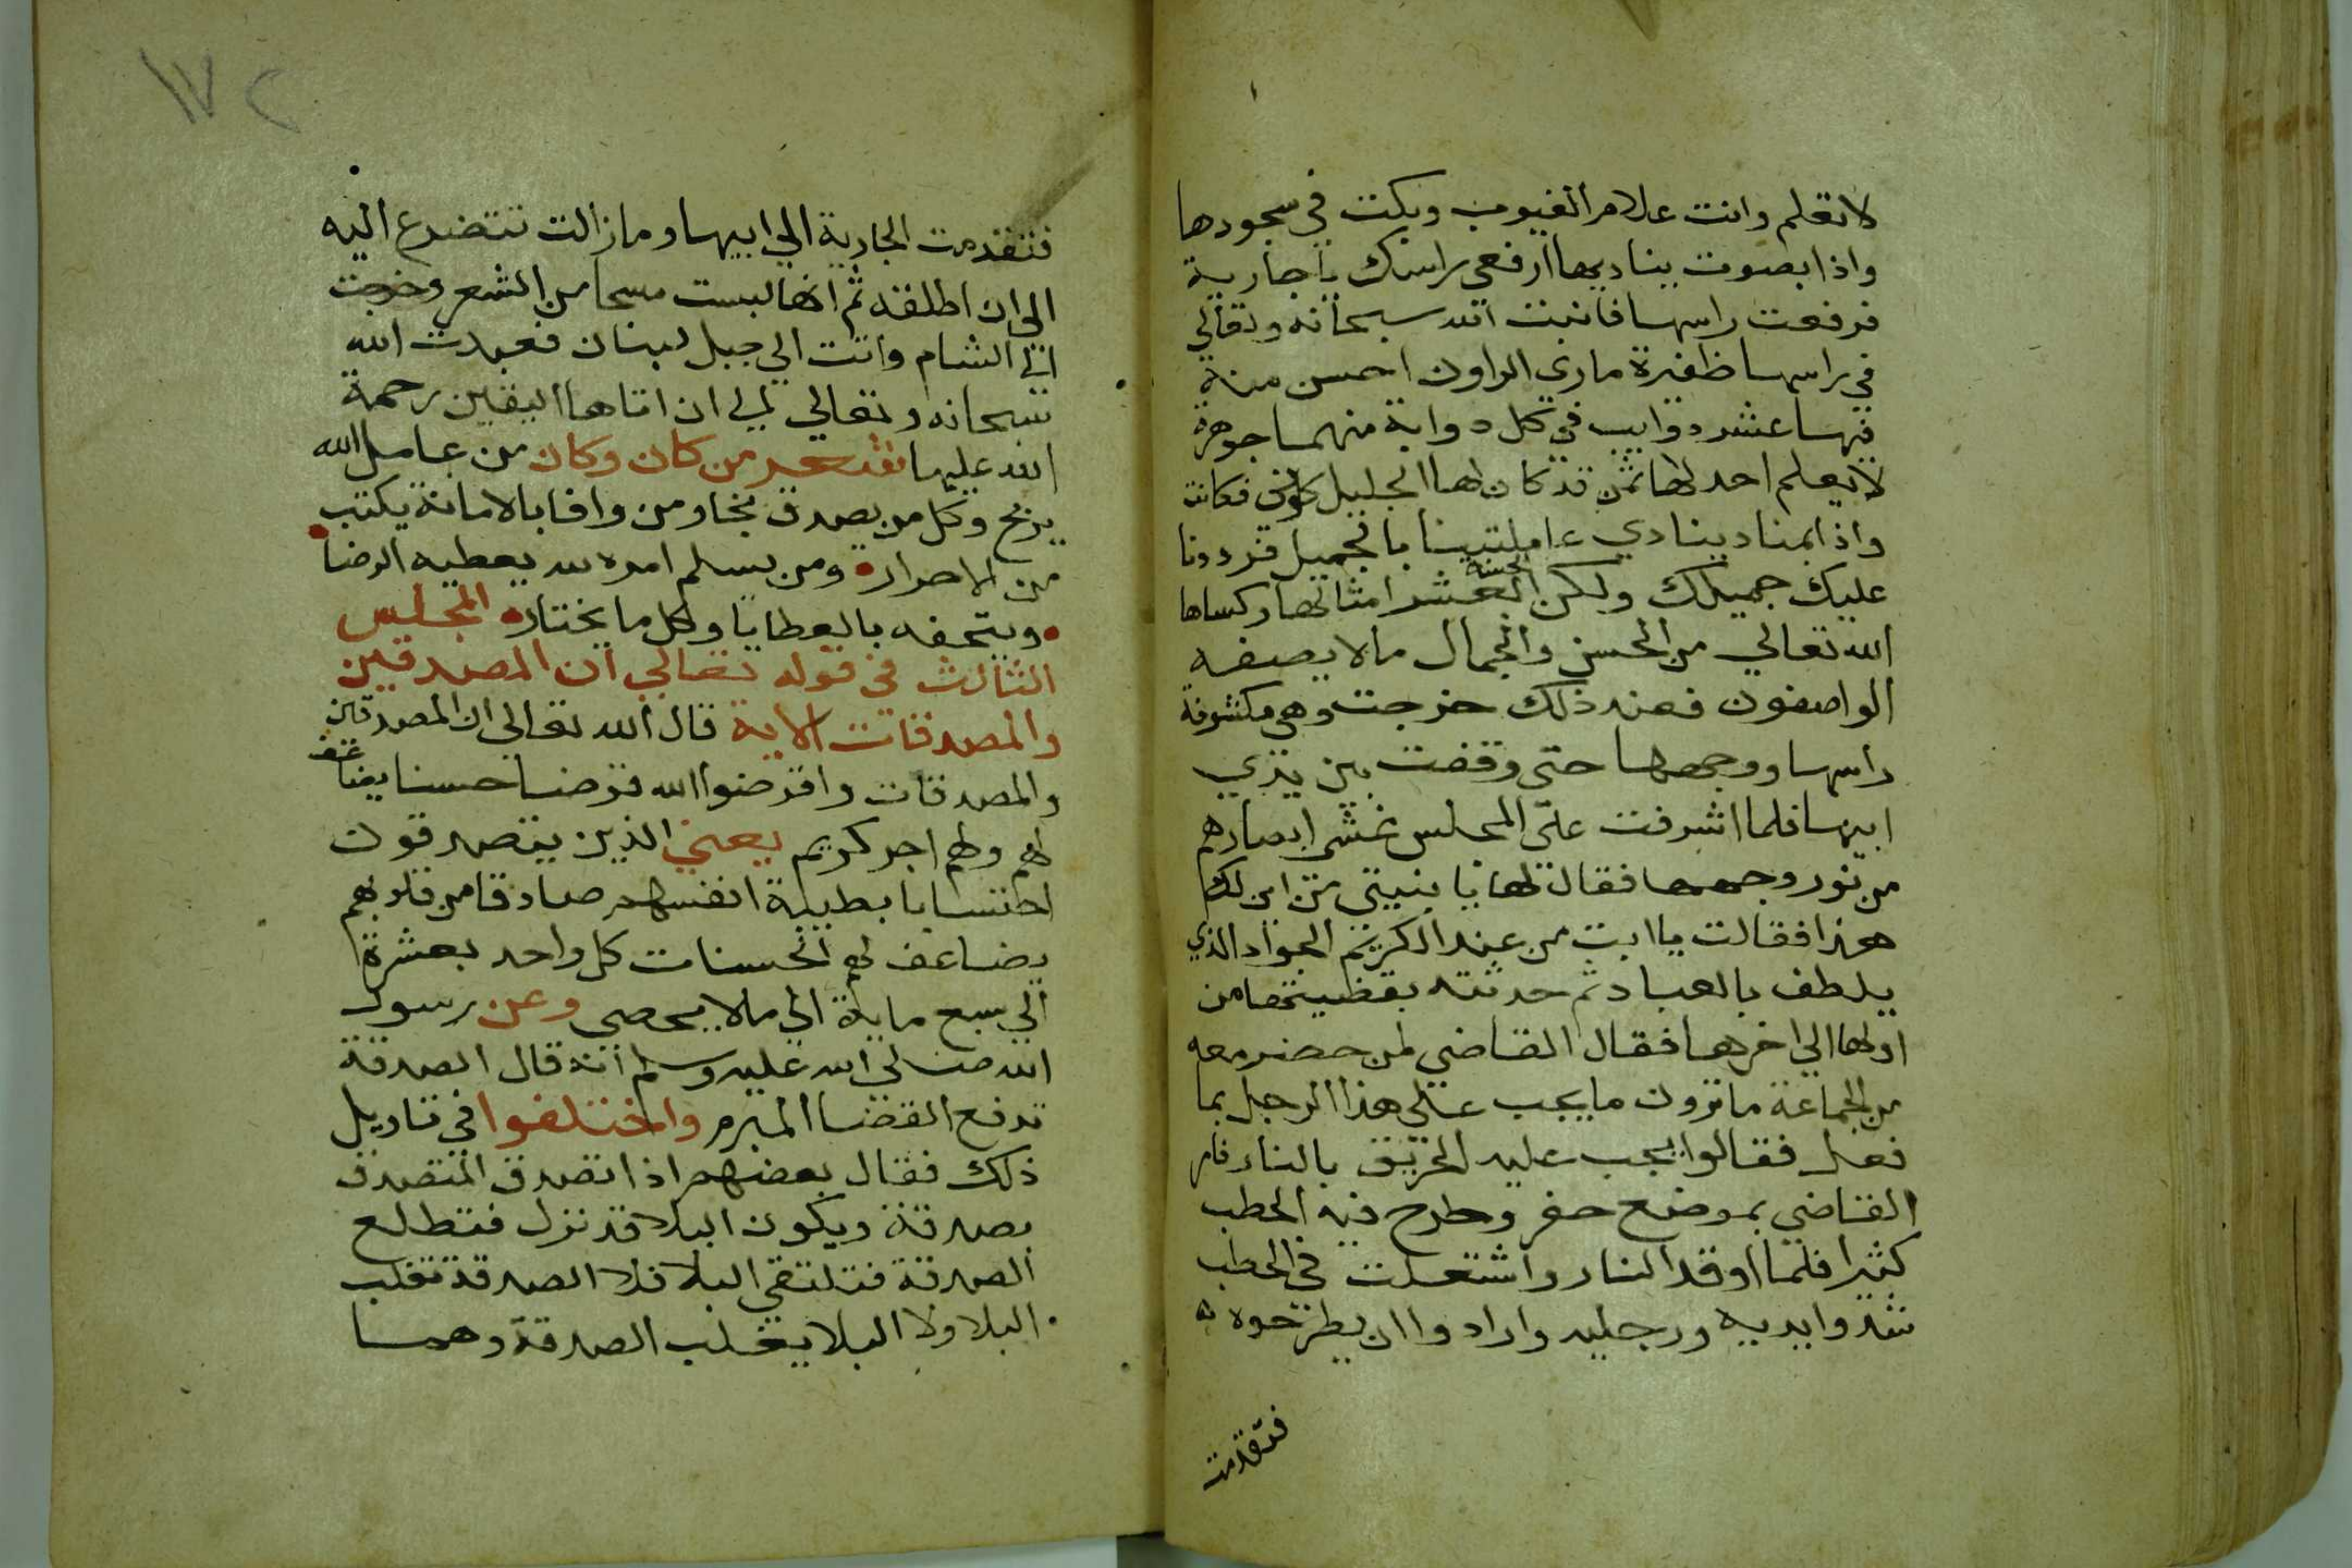 لا تعلم وانت علام الغيوب وبكت في سجودها
واذا بصوت يناديها ارفعي راسك يا جارية
فرفعت راسها فانبت الله سبحانه وتعالي
في راسها ظفيرة ما راي الراون احسن منه
فيها عشر دوايب في كل دوابة منهما جوهرة
لا يعلم احد لها ثمن قد كان لها الجليل فكانت
واذا بمناد ينادي عاملتينا بالجميل فرددنا
عليك جميلك ولكن الحسنة العشر امثالها وكساها
الله تعالي من الحسن والجمال ما لا يصفه
الواصفون فعند ذلك خرجت وهي مكشوفة
راسها ووجهها حتى وقفت بين يدي
ابيها فلما اشرفت على المجلس غشى ابصارهم
من نور وجهها فقال لها يا بنيتي من اين لك
هذا فقالت يا ابت من عند الكريم الجواد الذي
يلطف بالعباد ثم حدثته بقظيتها من
اولها الي اخرها فقال القاضي لمن حضر معه
من الجماعة ما ترون ما يجب على هذا الرجل بما
فعل فقالوا يجب عليه الحريق بالنار فامر
القاضي بموضع حفر وطرح فيه الحطب
كثيرا فلما اوقد النار واشتعلت في الحطب
شدوا يديه ورجليه وارادوا ان يطرحوه
فتقدمت
١٧٢
فتقدمت الجارية الي ابيها وما زالت تتضرع اليه
الي ان اطلقه ثم انها لبست مسحا من الشعر وخرجت
الي الشام واتت الي جبل لبنان فعبدت الله
سبحانه وتعالي الي ان اتاها اليقين رحمة
الله عليها من كان وكان من عامل الله
يربح وكل من يصدق نجا ومن وافا بالامانة يكتب
من الاحرار ومن يسلم امره لله يعطيه الرضا
ويتحفه بالعطايا وكل ما يختار المجلس
الثالث في قوله تعالي ان المصدقين
والمصدقات الاية قال الله تعالي ان المصدقين
والمصدقات واقرضوا الله قرضا حسنا يضاعف
لهم ولهم اجر كريم يعني الذين يتصدقون
احتسابا بطيبة انفسهم صادقا من قلوبهم
يضاعف لهم الحسنات كل واحد بعشرة
الي سبع ماية الي ما لا يحصي وعن رسول
الله صلى الله عليه وسلم انه قال الصدقة
تدفع القضا المبرم واختلفوا في تاويل
ذلك فقال بعضهم اذا تصدق المتصدق
بصدقة ويكون البلا قد نزل فتطلع
الصدقة فتلتقي البلا فلا الصدقة تغلب
البلا ولا البلا يغلب الصدقة وهما